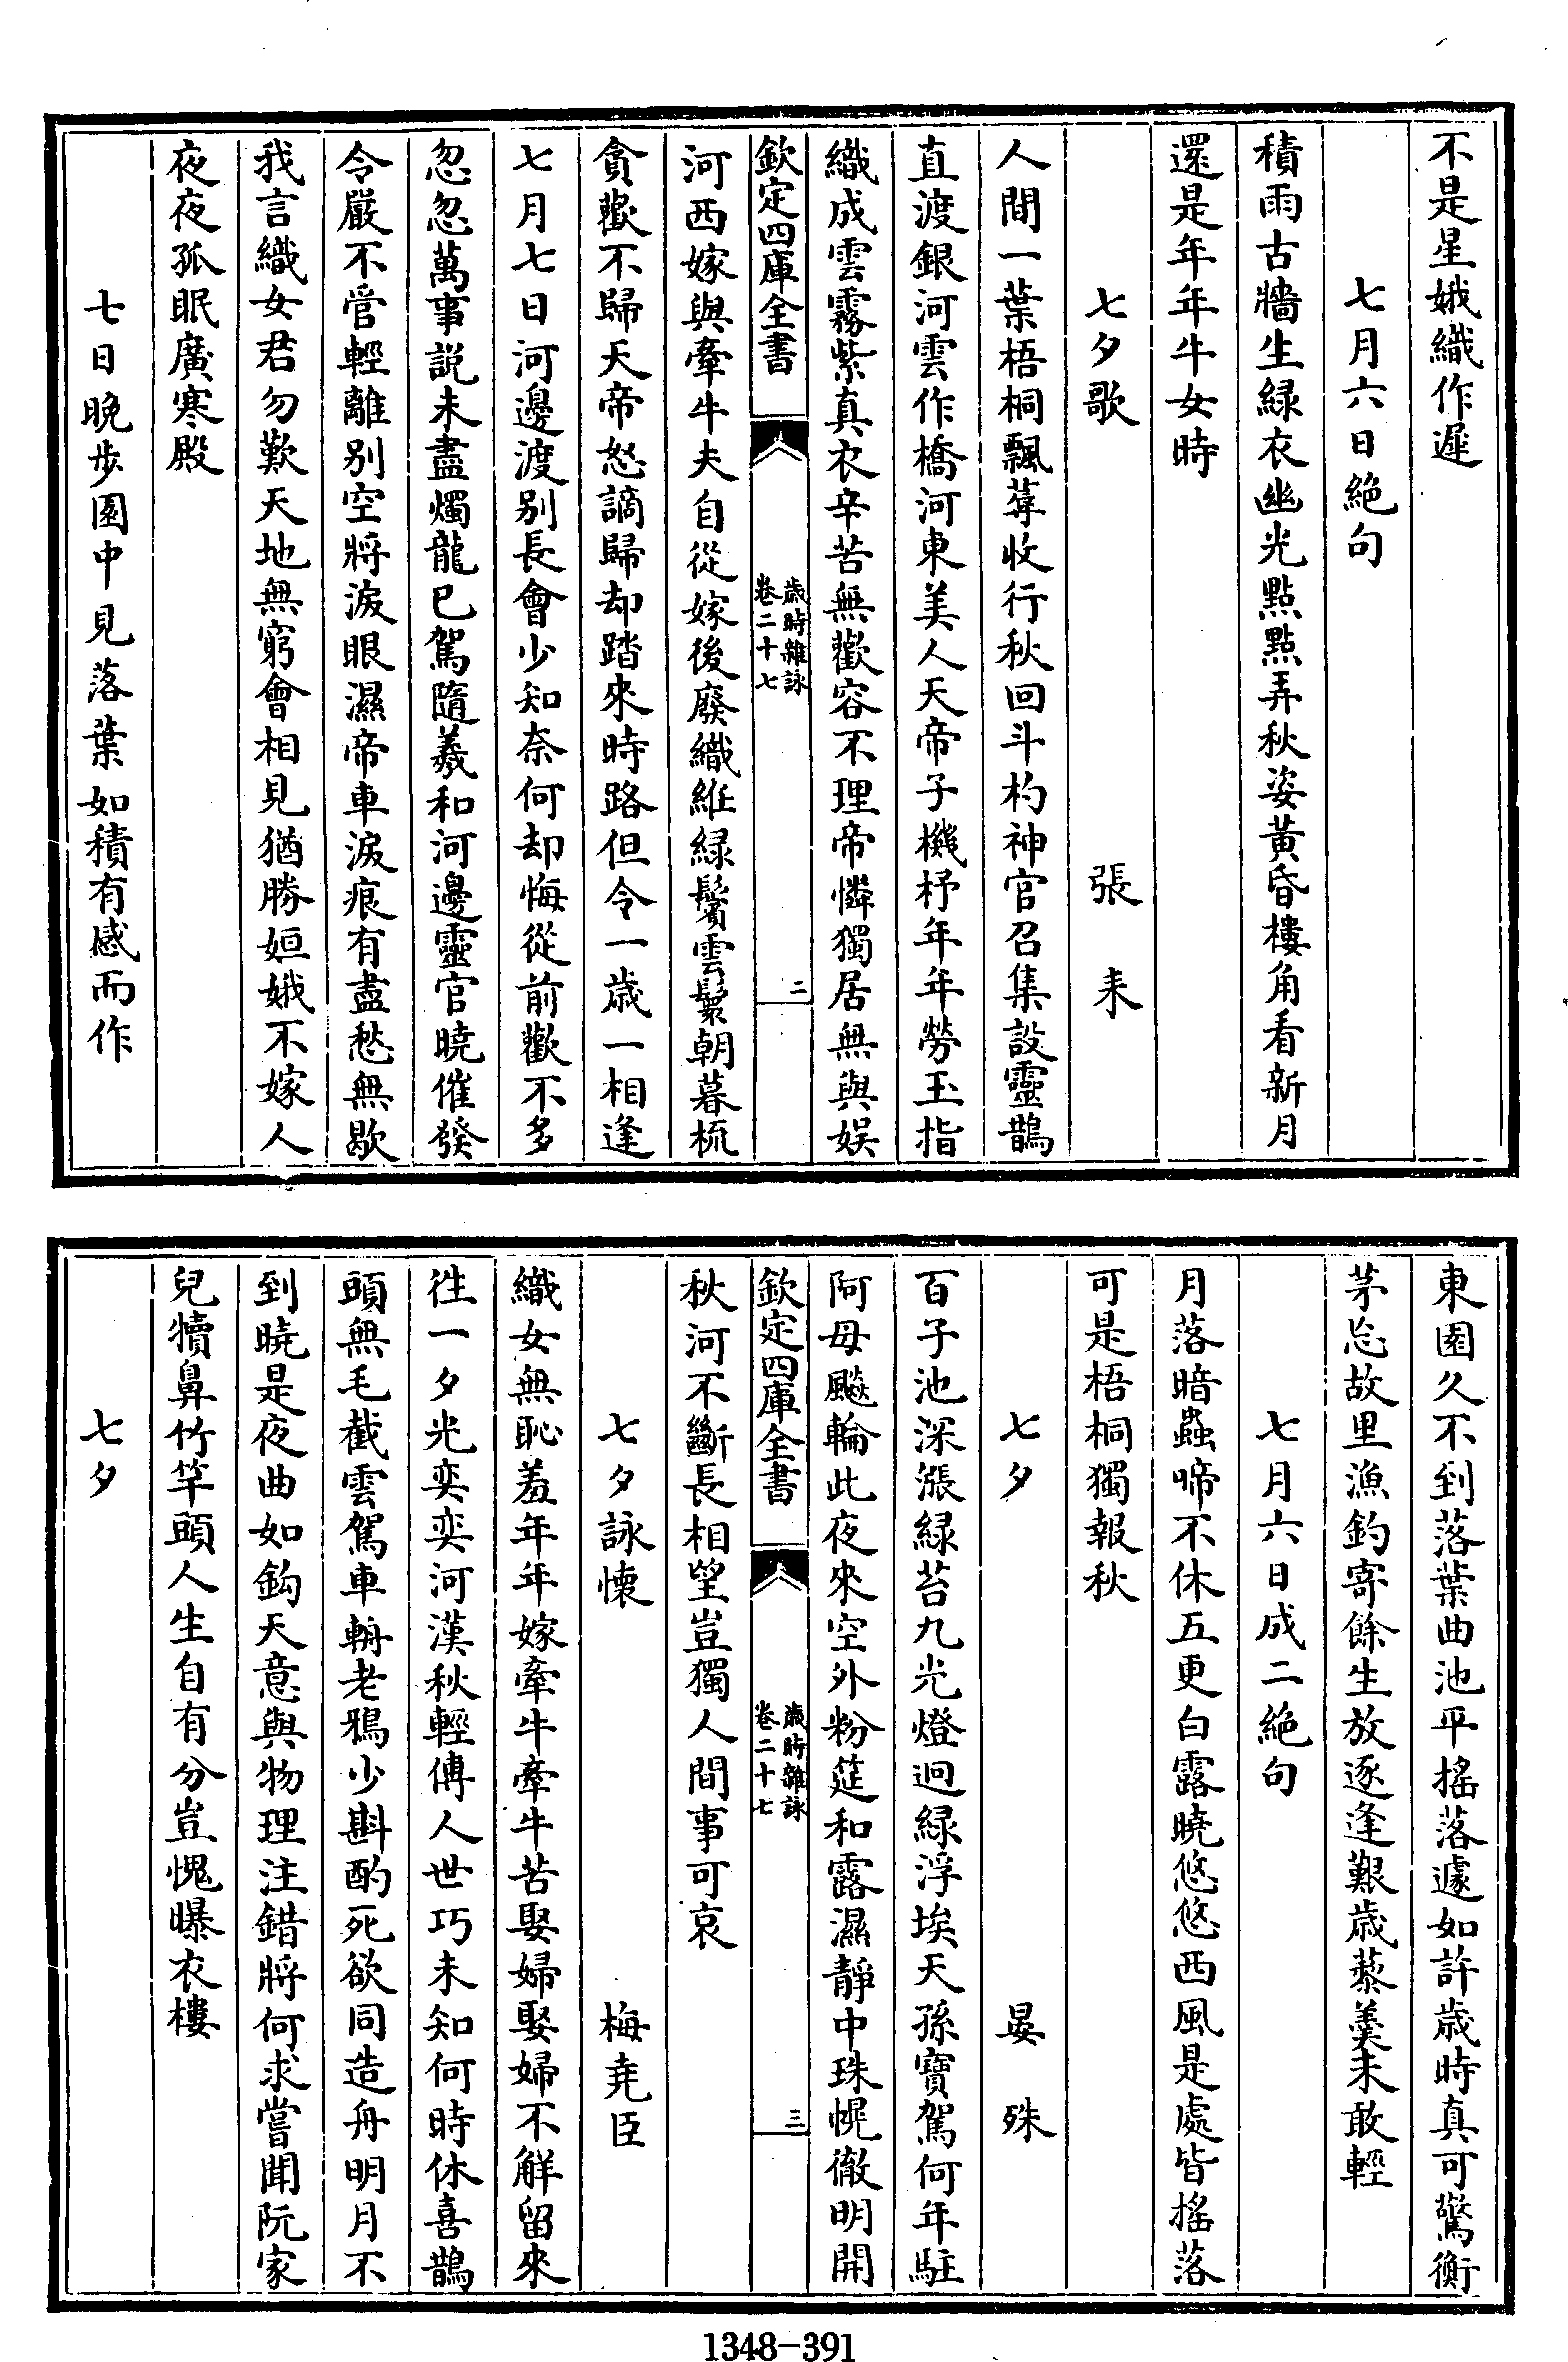 不是星娥織作遲
七月六日絶句
積雨古牆生緑衣幽光點點弄秋姿黄昏樓角看新月
還是年年牛女時
七夕歌 張耒
人間一葉梧桐飄蓐收行秋回斗杓神官召集設靈鵲
直渡銀河雲作橋河東美人天帝子機杼年年勞玉指
織成雲霧紫真衣辛苦無歡容不理帝憐獨居無與娱
欽定四庫全書 歲時雜詠 卷二十七 二
河西嫁與牽牛夫自從嫁後廢織絍緑鬢雲鬟朝暮梳
貪歡不歸天帝怒謫歸却踏來時路但令一歲一相逢
七月七日河邊渡别長會少知奈何却悔從前歡不多
忽忽萬事説未盡燭龍已駕隨羲和河邊靈官曉催發
令嚴不管輕離别空將淚眼濕帝車淚痕有盡愁無歇
我言織女君勿歎天地無窮會相見猶勝姮娥不嫁人
夜夜孤眠廣寒殿
七日晚步園中見落葉如積有感而作
東園久不到落葉曲池平摇落遽如許歲時真可驚衡
茅忘故里漁釣寄餘生放逐逢艱歲藜羹未敢輕
七月六日成二絶句
月落暗蟲啼不休五更白露曉悠悠西風是處皆摇落
可是梧桐獨報秋
七夕 晏殊
百子池深漲緑苔九光燈迥緑浮埃天孫寶駕何年駐
阿母飈輪此夜來空外粉筵和露濕靜中珠幌徹明開
欽定四庫全書 歲時雜詠 卷二十七 三
秋河不斷長相望豈獨人間事可哀
七夕詠懷 梅堯臣
織女無恥羞年年嫁牽牛牽牛苦娶婦娶婦不解留來
徃一夕光奕奕河漢秋輕傳人世巧未知何時休喜鵲
頭無毛截雲駕車輈老鴉少斟酌死欲同造舟明月不
到曉是夜曲如鈎天意與物理注錯將何求嘗聞阮家
兒犢鼻竹竿頭人生自有分豈愧曝衣樓
七夕
1348-391